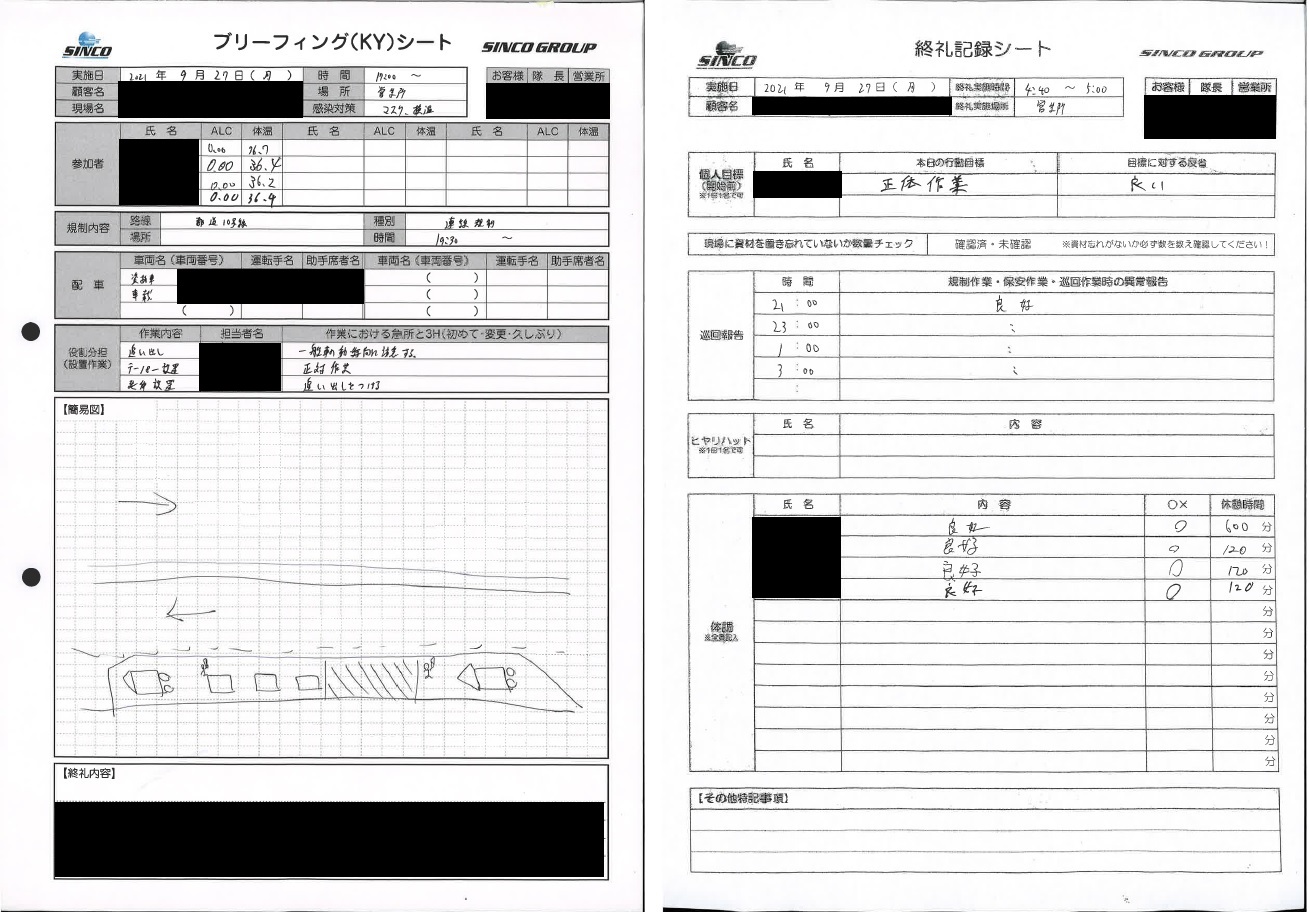 SINCO
ブリーフィング(KY)シート
SINCO GROUP
実施日 2021 年 9 月 27 日 ( 月 ) 時 間 19:00 ～
お客様 隊 長 営業所
顧客名 場 所 営業所
現場名 感染対策 マスク、検温
氏 名 ALC 体温 氏 名 ALC 体温 氏 名 ALC 体温
参加者
0.00 36.7
0.00 36.4
0.00 36.2
0.00 36.4
規制内容
路線 都道10号線 種別 車線規制
場所 時間 19:30 ～
配 車
車両名（車両番号） 運転手名 助手席者名 車両名（車両番号） 運転手名 助手席者名
資材車 ( )
車載 ( )
( ) ( )
役割分担
(設置作業)
作業内容 担当者名 作業における急所と3H(初めて・変更・久しぶり)
追い出し 一般車の動向に注意する。
テーパー設置
追い出しをつける
【簡易図】
【終礼内容】
SINCO
終礼記録シート
SINCO GROUP
実施日 2021 年 9 月 27 日 ( 月 ) 終礼実施時間 4:40 ～ 5:00
お客様 隊長 営業所
顧客名 終礼実施場所 営業所
個人目標
(開始前)
※1日1名で可
氏 名 本日の行動目標 目標に対する反省
作業 良い
現場に資材を置き忘れていないか数量チェック 確認済・未確認 ※資材忘れがないか必ず数を数え確認してください！
巡回報告
時 間 規制作業・保安作業・巡回作業時の異常報告
21 : 00 良 好
23 : 00 〻
1 : 00 〻
3 : 00 〻
:
ヒヤリハット
※1日1名で可
氏 名 内 容
体調
※全員記入
氏 名 内 容 ○× 休憩時間
良好 ○ 600 分
良好 ○ 120 分
良好 ○ 120 分
良好 ○ 120 分
分
分
分
分
分
分
分
分
【その他特記事項】